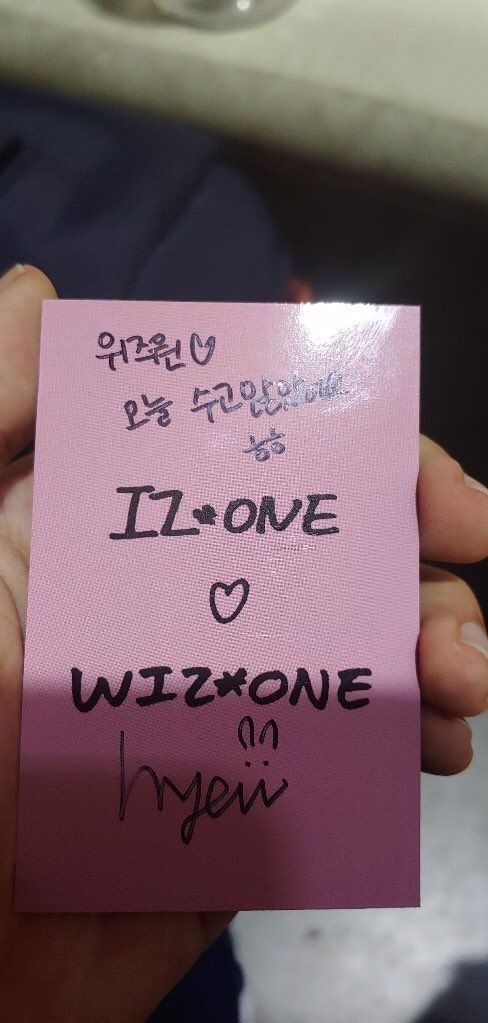 위즈원♡
오늘 수고많았어요
ㅎㅎ
IZ*ONE
♡
WIZ*ONE
hyeii